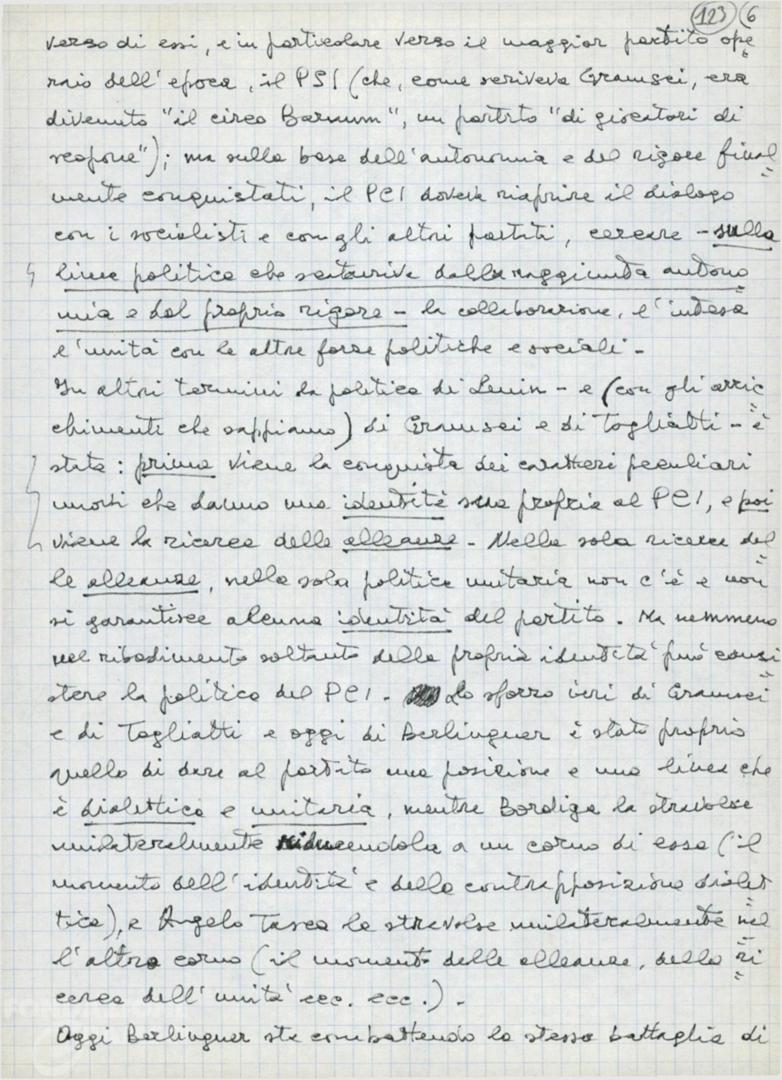 123 6
verso di essi, e in particolare verso il maggior partito ope=
raio dell'epoca, il PSI (che, come scriveva Gramsci, era
divenuto "il circo Barnum", un partito "di giocatori di
scopone"); ma sulla base dell'autonomia e del rigore final=
mente conquistati, il PCI doveva riaprire il dialogo
con i socialisti e con gli altri partiti, cercare - sulla
linea politica che scaturiva dalla raggiunta autono=
mia e dal proprio rigore - la collaborazione, l'intesa
e l'unità con le altre forze politiche e sociali -
In altri termini la politica di Lenin - e (con gli arric=
chimenti che sappiamo) di Gramsci e di Togliatti - è
stata: prima viene la conquista dei caratteri peculiari
nostri che danno una identità sua propria al PCI, e poi
viene la ricerca delle alleanze - Nella sola ricerca del=
le alleanze, nella sola politica unitaria non c'è e non
si garantisce alcuna identità del partito. Ma nemmeno
nel ribadimento soltanto della propria identità può consi=
stere la politica del PCI. Lo sforzo ieri di Gramsci
e di Togliatti e oggi di Berlinguer è stato proprio
quello di dare al partito una posizione e una linea che
è dialettica e unitaria, mentre Bordiga la stravolse
unilateralmente riducendola a un corno di essa (il
momento dell'identità e della contrapposizione dialet=
tica), e Angelo Tasca la stravolse unilateralmente nel=
l'altro corno (il momento delle alleanze, della ri=
cerca dell'unità ecc. ecc.) -
Oggi Berlinguer sta combattendo la stessa battaglia di